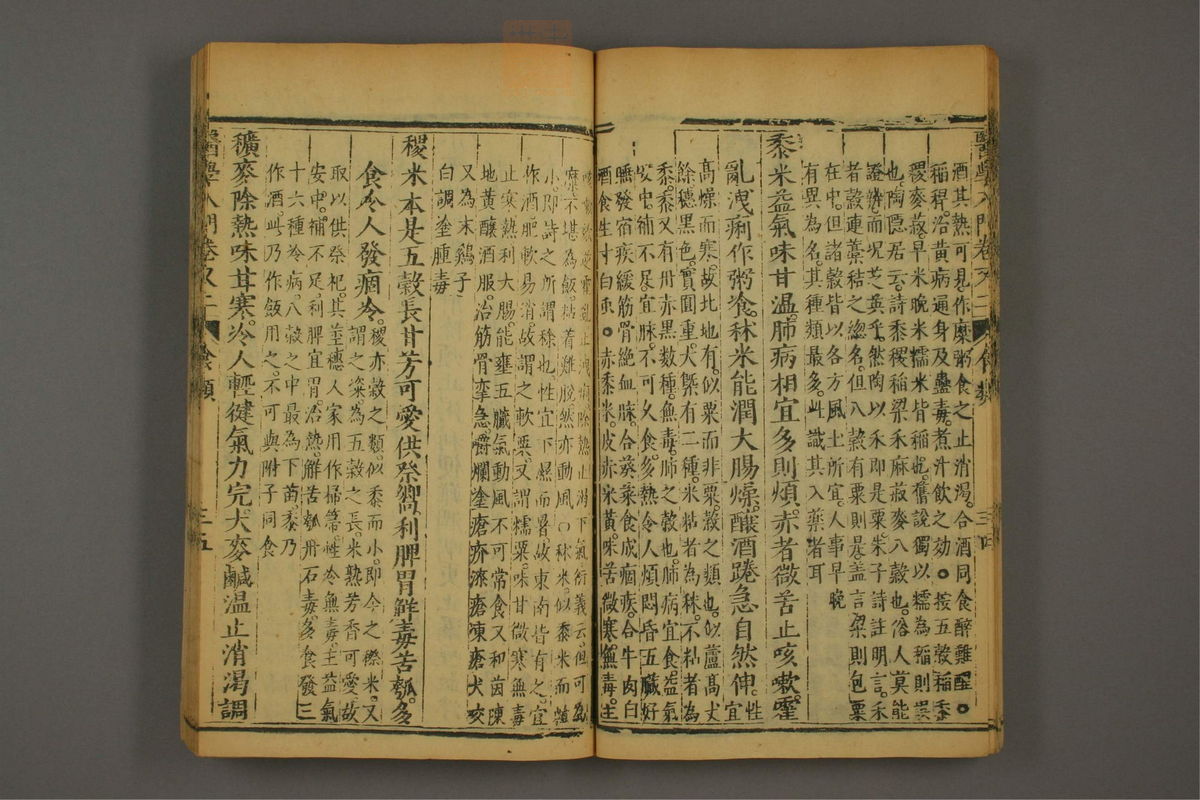 醫學入門卷之二 食類 三四
酒其熱可見作糜粥食之止消渴合酒同食醉難醒○
稻稈治黃病通身及蠱毒煮汁飲之効○按五穀稻黍
稷麥菽早米晚米糯米皆稻也舊說獨以糯為稻則誤
也陶隱居云詩黍稷稻粱禾麻菽麥八穀也俗人莫能
證辨而况芝英乎然陶以禾即是粟朱子詩註明言禾
者穀連藁秸之總名但八穀有粟則是盖言粱則包粟
在中但諸穀皆以各方風土所宜人事早晚
有異為名其種類最多此識其入藥者耳
黍米益氣味甘溫肺病相宜多則煩赤者微苦止咳嗽霍
亂洩痢作粥飡秫米能潤大腸燥釀酒踡急自然伸性宜
高燥而寒故北地有似粟而非粟穀之類也似蘆高丈
餘穗黑色實圓重大槩有二種米粘者為秫不粘者為
黍黍又有丹赤黑數種無毒肺之穀也肺病宜食益氣
安中補不足宜脉不可久食多熱令人煩悶昏五臟好
睡發宿疾緩筋骨絕血脉合葵菜食成痼疾合牛肉白
酒食生寸白虫○赤黍米皮赤米黃味苦微寒無毒主
亂止洩痢除熱止渴下氣衍義云但可為
糜不堪為飯粘着難脫然亦動風○秫米似黍米而顆
小即詩之所謂稌也性宜下濕而暑故東南皆有之宜
作酒肥軟易消故謂之軟粟又謂糯粟味甘微寒無毒
止寒熱利大腸能壅五臟氣動風不可常食又和茵陳
地黃釀酒服治筋骨攣急嚼爛塗瘡疥漆瘡凍瘡犬咬
又為末鷄子
白調塗腫毒
稷米本是五穀長甘芳可愛供祭饗利脾胃解毒苦瓠多
食令人發痼冷稷亦穀之類似黍而小即今之穄米又
謂之粢為五穀之長米熟芳香可愛故
取以供祭祀其莖穗人家用作掃箒性冷無毒主益氣
安中補不足利脾宜胃治熱解苦瓠丹石毒多食發三
十六種冷病八穀之中最為下苗黍乃
作酒此乃作飯用之不可與附子同食
穬麥除熱味甘寒冷人輕健氣力完大麥鹹溫止消渴調
醫學入門卷之二 食類 三五